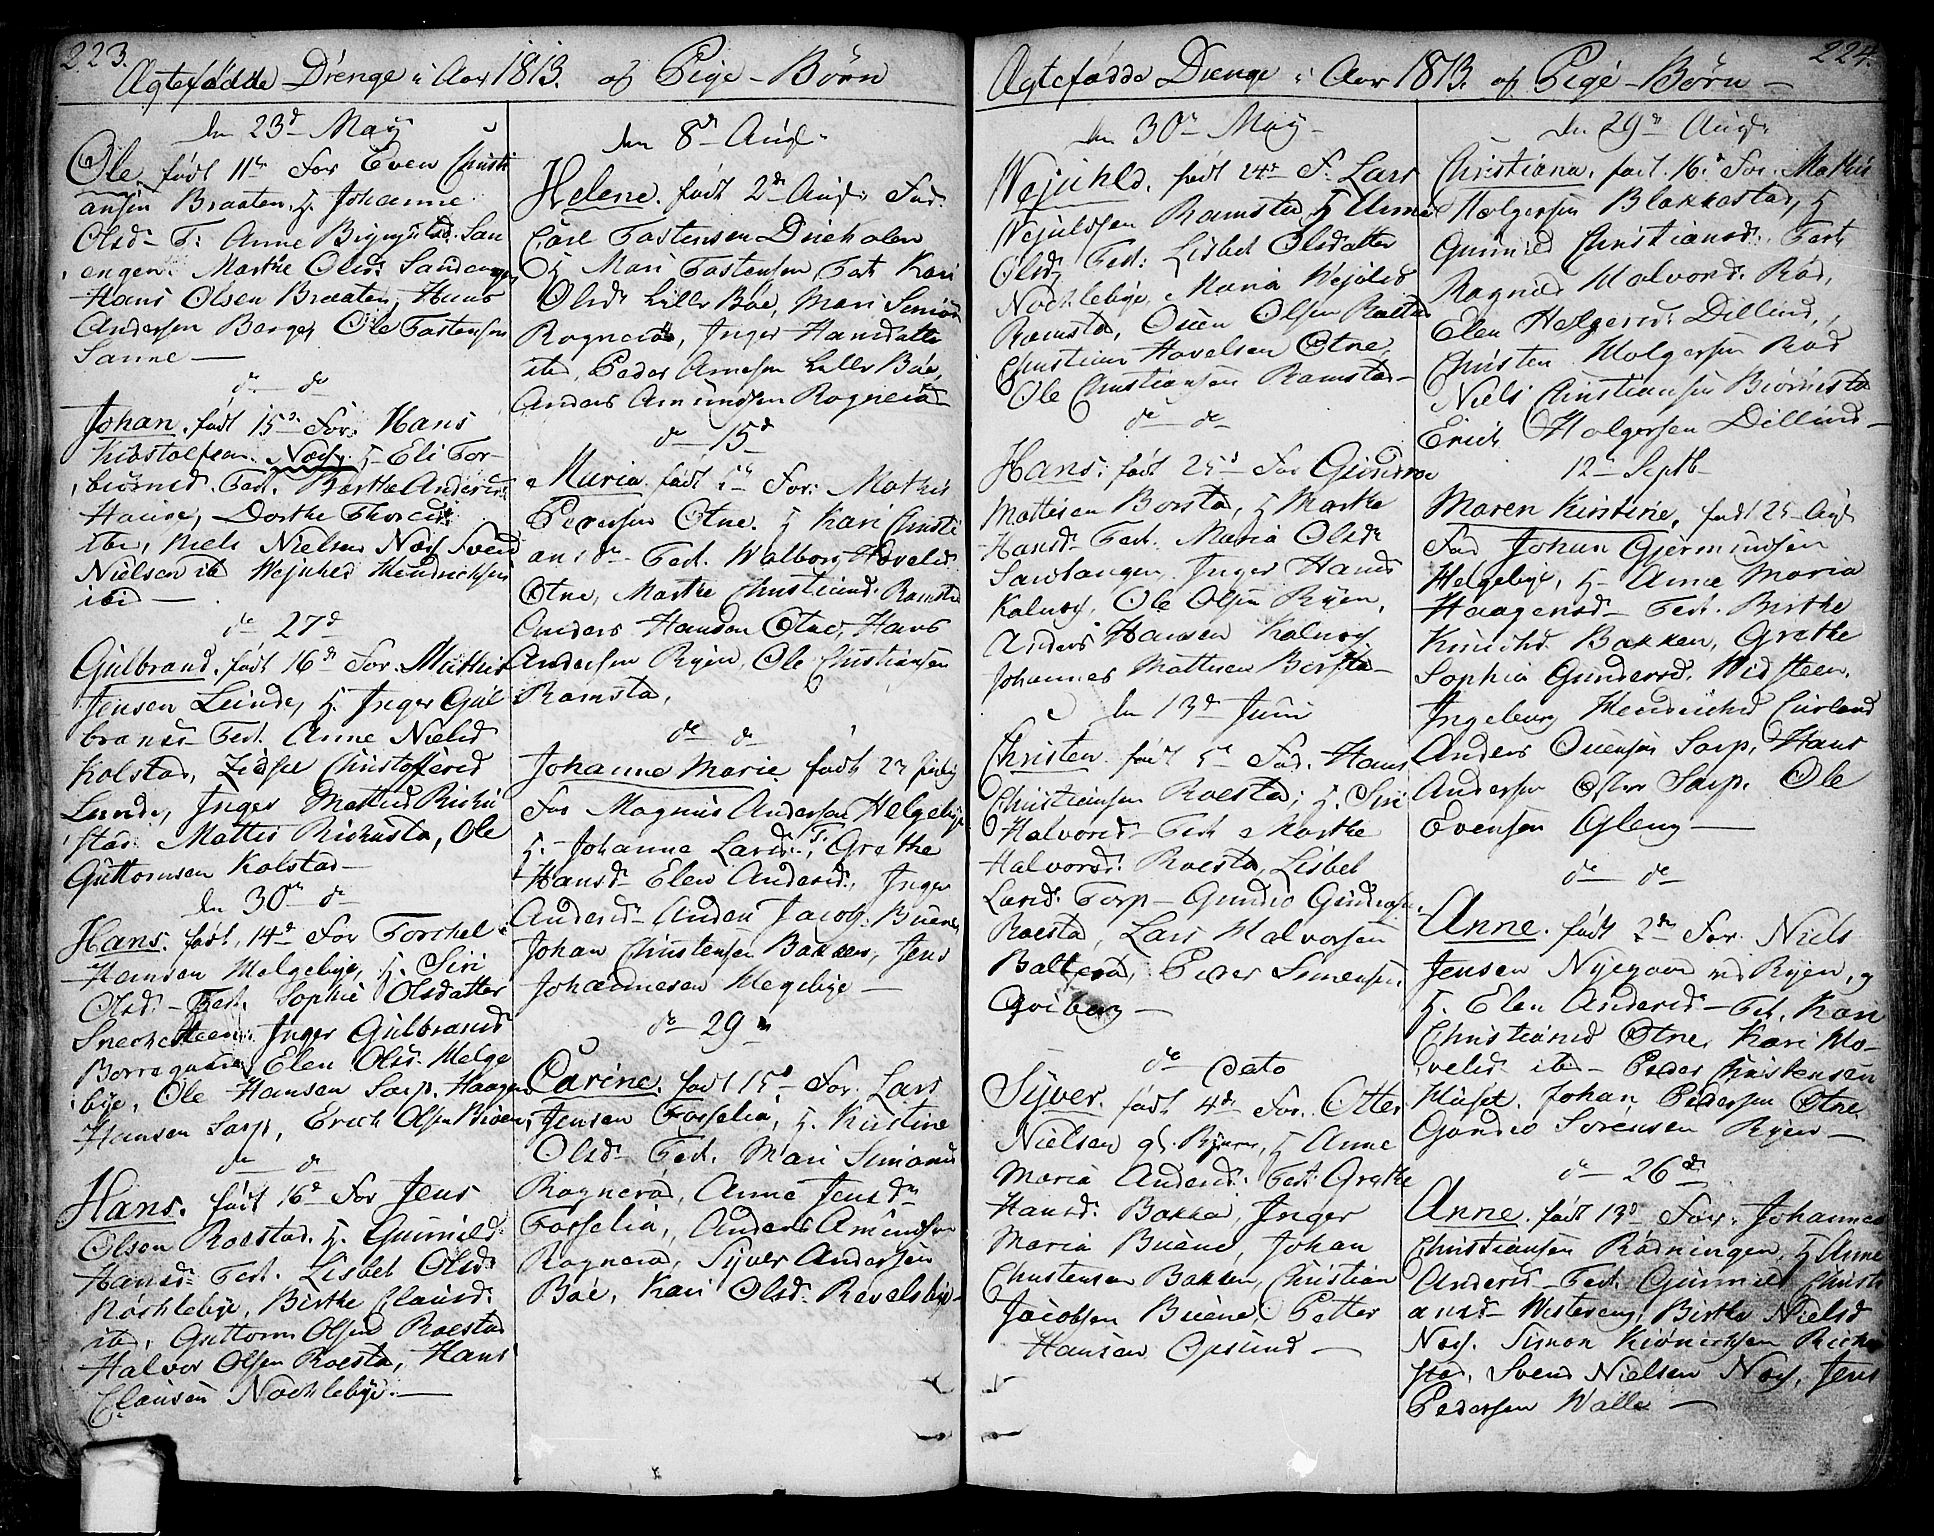 223.
Ægtefødde Drenge i Aar 1813. og Pige-Børn
den 23d May
Ole født 11te For Even Christi
ansen Braaten, H. Johanne
Olsd. F: Anne Bryngulsd. San
engen. Marthe Olsd.
Hans Olsen Braaten, Hans
Andersen Berger, Ole Tostensen
Sanne —
do do
Johan. født 15d For: Hans
Kristofsen. Næs, H. Eli Tor-
biørnsd. Fad. Berthe Andersd
Hause, Dorthe
ibid, Niels Nielsen Næs Svend
Nielsen ibd Wejuhld Hendrichsen
ibid —
do 27d
Gulbrand. født 16de For. Mathis
Jensen Lunde, H. Inger Gul
brands. Fad. Anne Nielsd
Kolstad, Christoffersd
Lunde, Inger Mattisd Richu
stad. Mattis Richusta, Ole
Guttormsen Kolstad —
den 30te do
Hans. født, 14d For Torchel
Hansen Helgebye, H. Siri
Olsd. — Fad. Sophie Olsdatter
Snechesteen. Inger Gulbransd
Borregaard, Elen Olsd. Helge
bye, Ole Hansen Sarp, Haagen
Hansen Sarp, Erich Olsen Buen
do d
Hans. født 16d For Jens
Olsen Roestad. H. Gunnild
Hansd. Fad. Lisbet Olsd
Nochlebye, Birthe Clausd.
ibd, Guttorm Olsen Roestad
Halvor Olsen Roesta, Hans
Clausen Nochlebye. —
den 8de Aug
Helene. født 2d Aug. Fad.
Carl Tostensen Dueholen
H Mari Tostensen, Fad. Kari
Olsd. Lille Bøe, Mari Simons
Rognerød, Inger Hansdatte
ibd, Peder Arnesen Lille Bøe,
Anders Amundsen Rognerød
do 15d
Maria. født For: Mathis
Pedersen Otne. H Kari Christi
ansd. — Fad. Walborg Hovelsd.
Otne, Marthe Christiansd. Ramsta
Anders Hansen Otne, Hans
Andersen Ryen, Ole Christiansen
Ramsta,
do do
Johanne Marie født 23 July
For Magnus Andersen Helgebye
H. Johanne Larsd. F Grethe
Hansd. Elen Andersd., Inger
Andersd. Anders Jacobs. Buene
Johan Christensen Bakken, Jens
Johannesen Hegebye —
do 29
Carine. født 15d For. Lars
Jensen Fosselia, H. Kirstine
Olsd. Fad. Mari Simons
Rognerød, Anne Jensd.
Fosselia, Anders Amundsen
Rognerød, Sijver Andersen
Bøe, Kari Olsd. Revelsbye
224.
Ægtefødde Drenge i Aar 1813. og Pige-Børn —
den 30te May
Wejuhld. født 24d F. Lars
Wejulssen Ramstad H Anne
Olsd, Fad: Lisbet Olsdatter
Nochlebye, Maria Wejulsd
Ramsta, Osten Olsen
Christian Hovelsen Otne,
Ole Christiansen Ramstad —
do do
Hans. født 25d For
Mattisen Borsta, H Marthe
Hansd. Fad. Maria Olsd.
Sandangen. Inger Hansd
Kalnæs, Ole Olsen Ryen,
Anders Hansen Kalnæs
Johannes Mattisen Borsta —
den 13de Juni
Christen. født 5te Fad. Hans
Christiansen Roesta, H. Siri
Halvorsd. Fad. Marthe
Halvorsd. Roesta, Lisbet
Larsd. Torp — Gundro
Roesta, Lars Halvorsen
Peder Simensen
do Dato
Sijver. født 4de For. Otter
Nielsen H Anne
Maria Andersd. Fad. Grethe
Hansd. Bakke, Inger
Maria Buene, Johan
Christensen Bakken, Christian
Jacobsen Buene, Petter
Hansen Opsund —
den 29de Aug.
Christiana. født 16. For. Mathis
Holgersen Blakkestad, H
Gunnild Christiansd. Fad.
Ragnild Halvorsd. Rød,
Elen Holgersd. Dillind,
Christen Holgersen Rød
Niels Christiansen Biørnesta
Erich Holgersen Dillind —
12te Septb
Maren Kirstine, født 25 Aug
Fad Johan Gjermundsen
Helgebye, H. Anne Maria
Haagensd — Fad. Birthe
Knudsd Bakken, Grethe
Sophia Gundersd. Widsteen,
Ingeborg Hendrichsd Curland
Anders Svensen Sarp, Hans
Andersen Øster Sarp. Ole
Evensen Gleng —
do do
Anne. født 2de For. Niels
Jensen Nyegaar ved Ryen, og
H. Elen Andersd — Fad. Kari
Christiansd Otne, Kari Ho-
velsd ibd — Peder Christensen
Huset. Johan Pedersen Otne
Gundro Sørensen Ryen —
do 26de
Anne. født 19d For. Johannes
Christiansen Rødningen, H Anne
Andersd — Fad. Gunnild Christi
ansd. Westereng, Birthe Nielsd
Næs. Simon Richu
stad, Svend Nielsen Næs, Jens
Pedersen Walle —